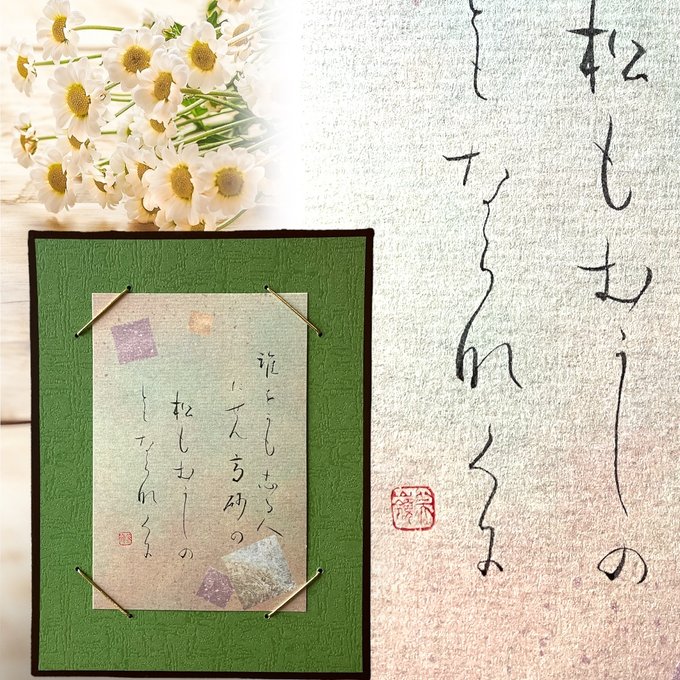 誰をかも志る人
にせん高砂の
松もむかしの
ともならなくに
松もむかしの
もならなくに